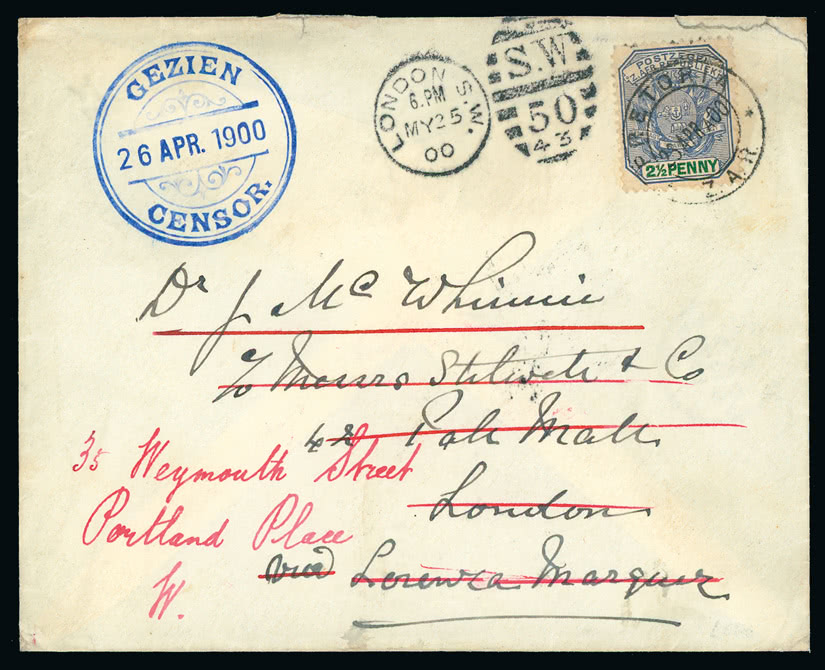 GEZIEN
26 APR. 1900
CENSOR.
LONDON S.W.
6.PM
MY25
00
S.W
50
43
POSTZEGEL
Z.AFR.REPUBLIEK
PRETORIA
APR 00
Z.A.R
2½ PENNY
Dr J McWhinnie
c/o Messrs Stilwell & Co
42 Pall Mall
London
via Lorenzo Marquez
35 Weymouth Street
Portland Place
W.